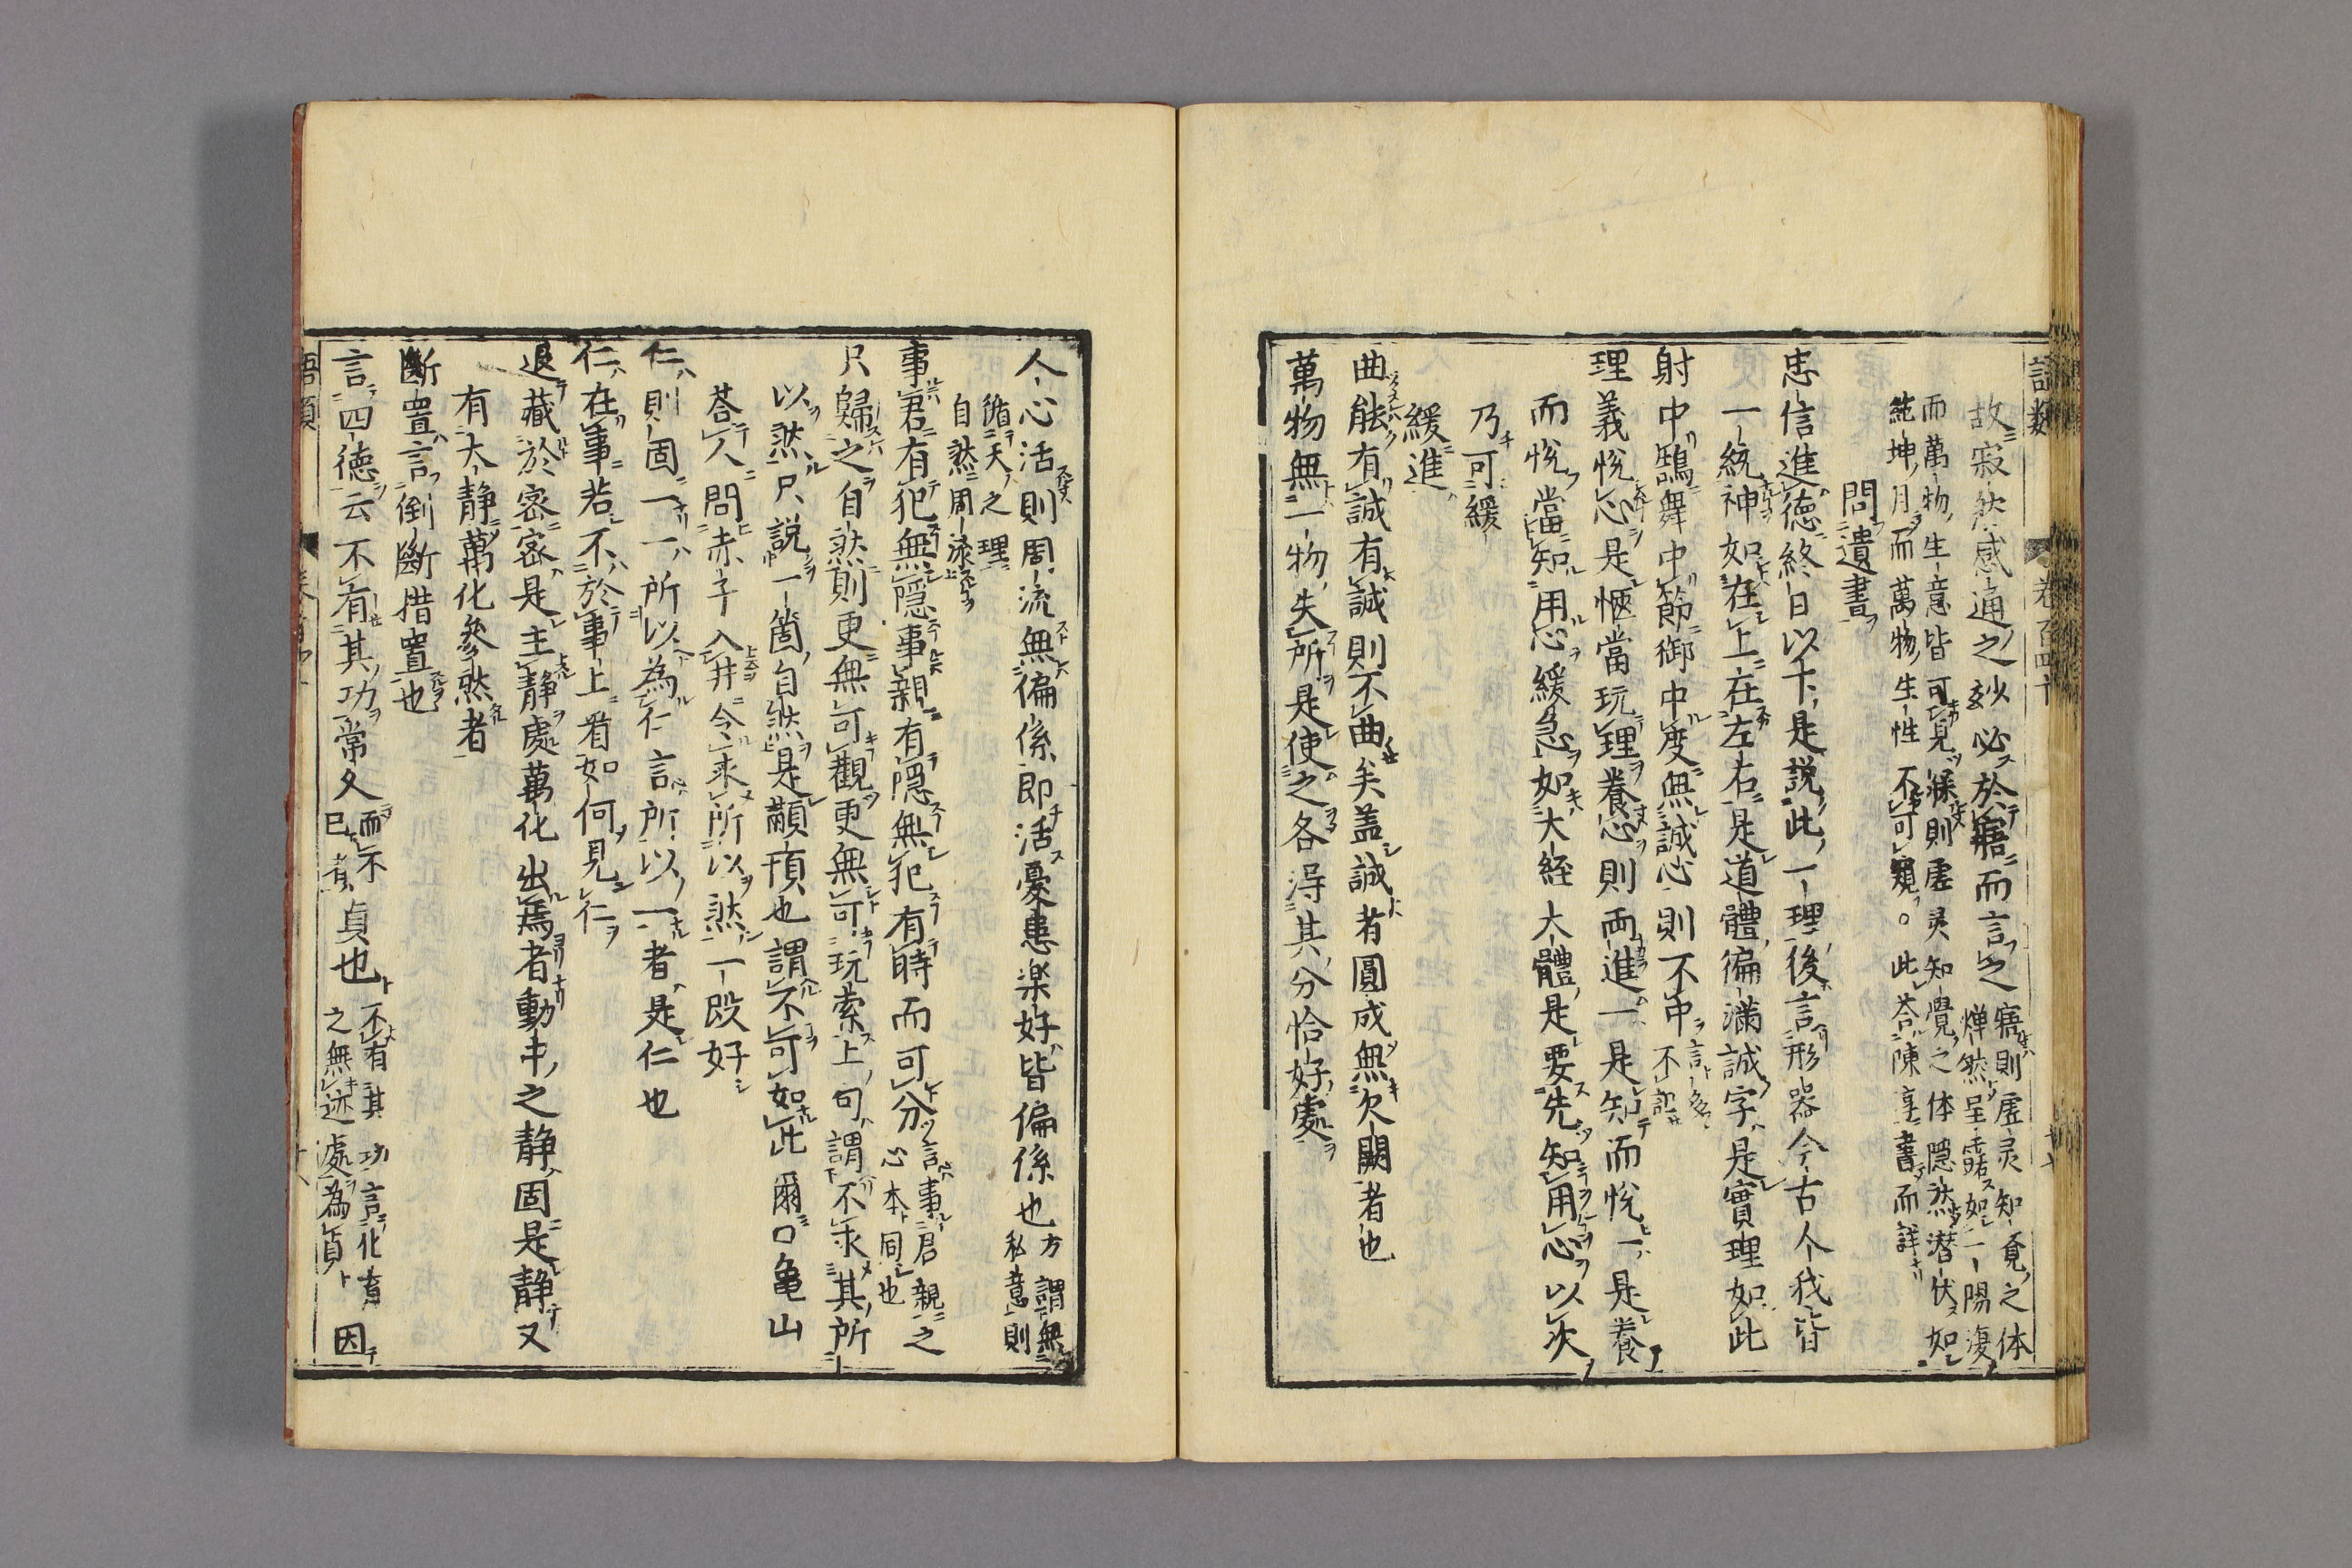 語類　卷百四十
故寂然感通之妙必於寤而言之寤則虛灵知覚之体
燀然呈露如一陽復
而萬物生意皆可見寐則虛灵知覺之体隠然潜伏如
純坤月而萬物生性不可窺。此荅陳淳書而詳
問遺書
忠信進徳終日以下是説此一理後言形器今古人我皆
一統神如在上在左右是道體徧滿誠字是實理如此
射中鵠舞中節御中度無誠心則不中
理義悅心是愜當玩理養心則兩進一是知而悅一是養
而悅當知用心緩急如大経大體是要先知用心以次
乃可緩
緩進
曲能有誠有誠則不曲矣盖誠者圓成無欠闕者也
萬物無一物失所是使之各得其分恰好處
人心活則周流無偏係即活憂患楽好皆偏係也方謂無
私意則
循天之理
自然周流
事君有犯無隱事親有隠無犯有時而可分言事君親之
心本同也
只歸之自然則更無可觀更無可玩索上句謂不求其所
以然只説一箇自然是顢頇也謂不可如此爾○亀山
荅人問赤子入井今求所以然一段好
仁則固一一所以為仁言所以一者是仁也
仁在事若不於事上看如何見仁
退藏於密密是主靜處萬化出焉者動中之靜固是靜又
有大靜萬化參然者
斷置言倒斷措置也
言四徳云不有其功常久而不
已者貞也不有其功言化育
之無迹處為貞因
語類